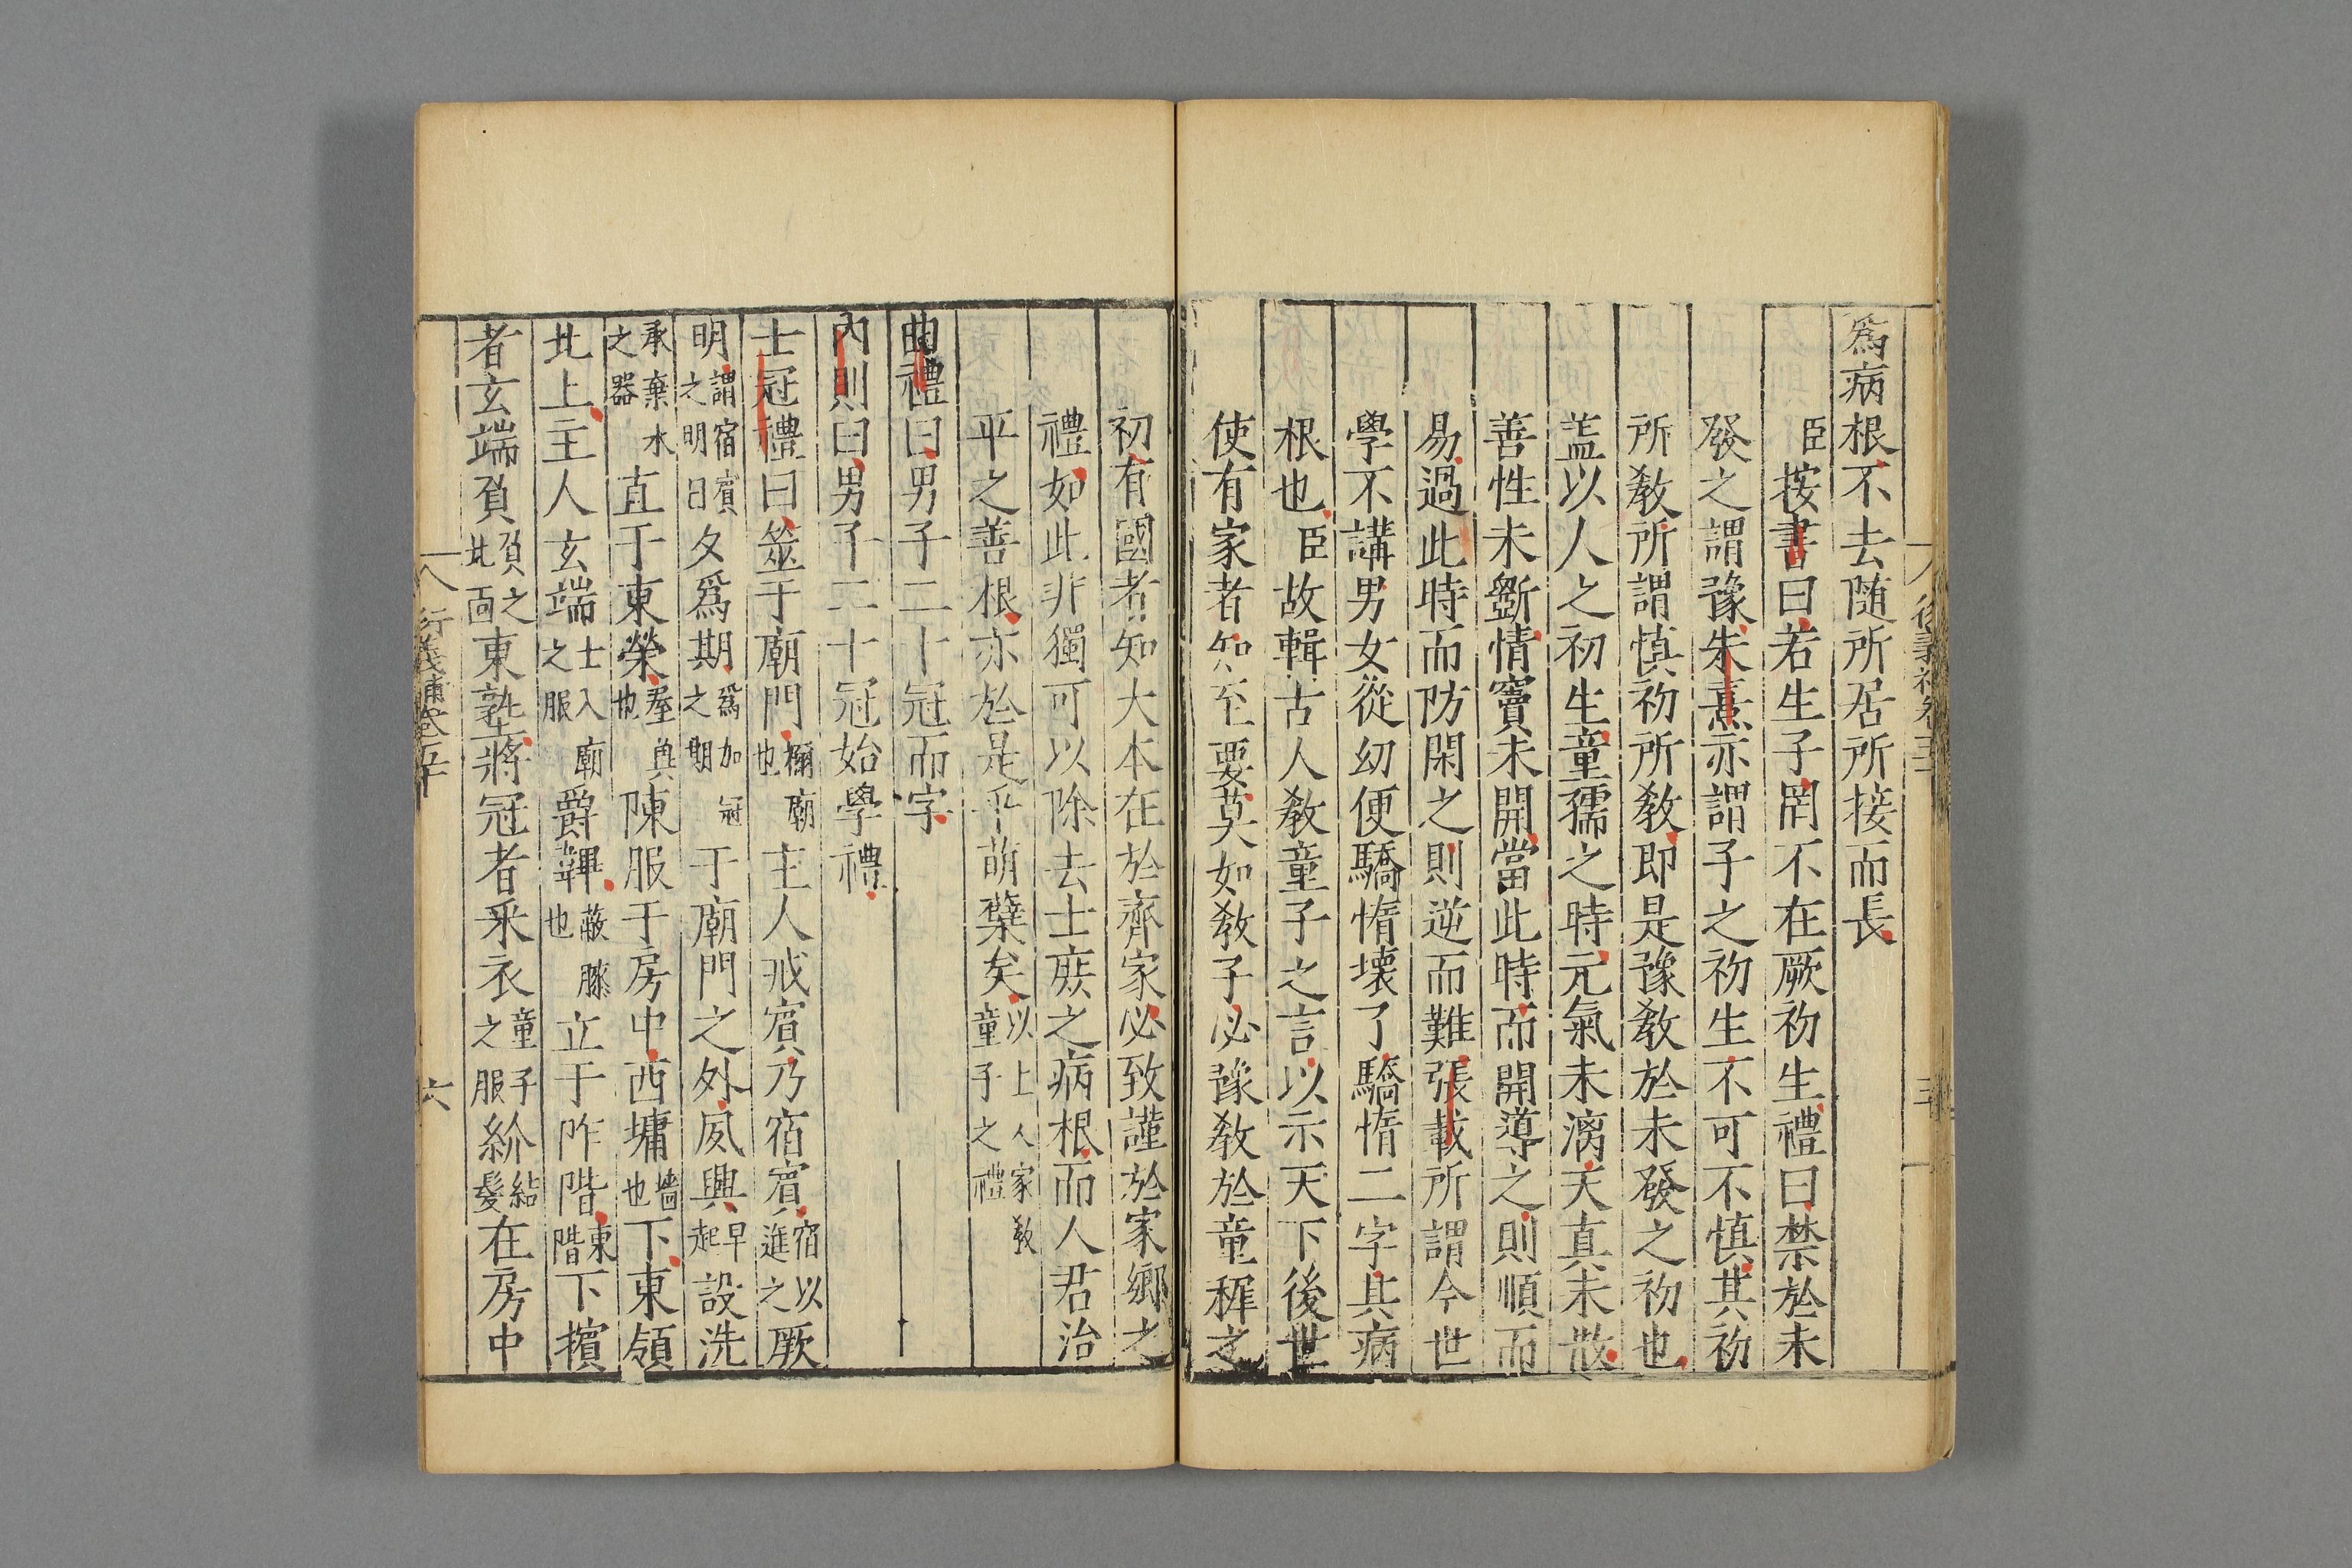 為病根不去随所居所接而長
臣按書曰若生子罔不在厥初生禮曰禁於未
發之謂豫朱熹亦謂子之初生不可不慎其初
所教所謂慎初所教即是豫教於未發之初也
盖以人之初生童孺之時元氣未漓天真未散
善性未斵情竇未開當此時而開導之則順而
易過此時而防閑之則逆而難張載所謂今世
學不講男女從幼便驕惰壊了驕惰二字其病
根也臣故輯古人教童子之言以示天下後世
使有家者知至要莫如教子必豫教於童穉之
初有國者知大本在於齊家必致謹於家鄉之
禮如此非獨可以除去士庻之病根而人君治
平之善根亦於是乎萌蘖矣以上人家教童子之禮
曲禮曰男子二十冠而字
內則曰男子二十冠始學禮
士冠禮曰筮于廟門禰廟也主人戒賔乃宿賔宿以進之厥
明謂宿賔之明日夕為期為加冠之期于廟門之外夙興早起設洗
承棄水之器直于東榮屋典也陳服于房中西墉墻也下東領
北上主人玄端士入廟之服爵韠蔽膝也立于阼階東階下擯
者玄端負負之北面東塾將冠者釆衣童子之服紒結髮在房中
行義補卷五十
六